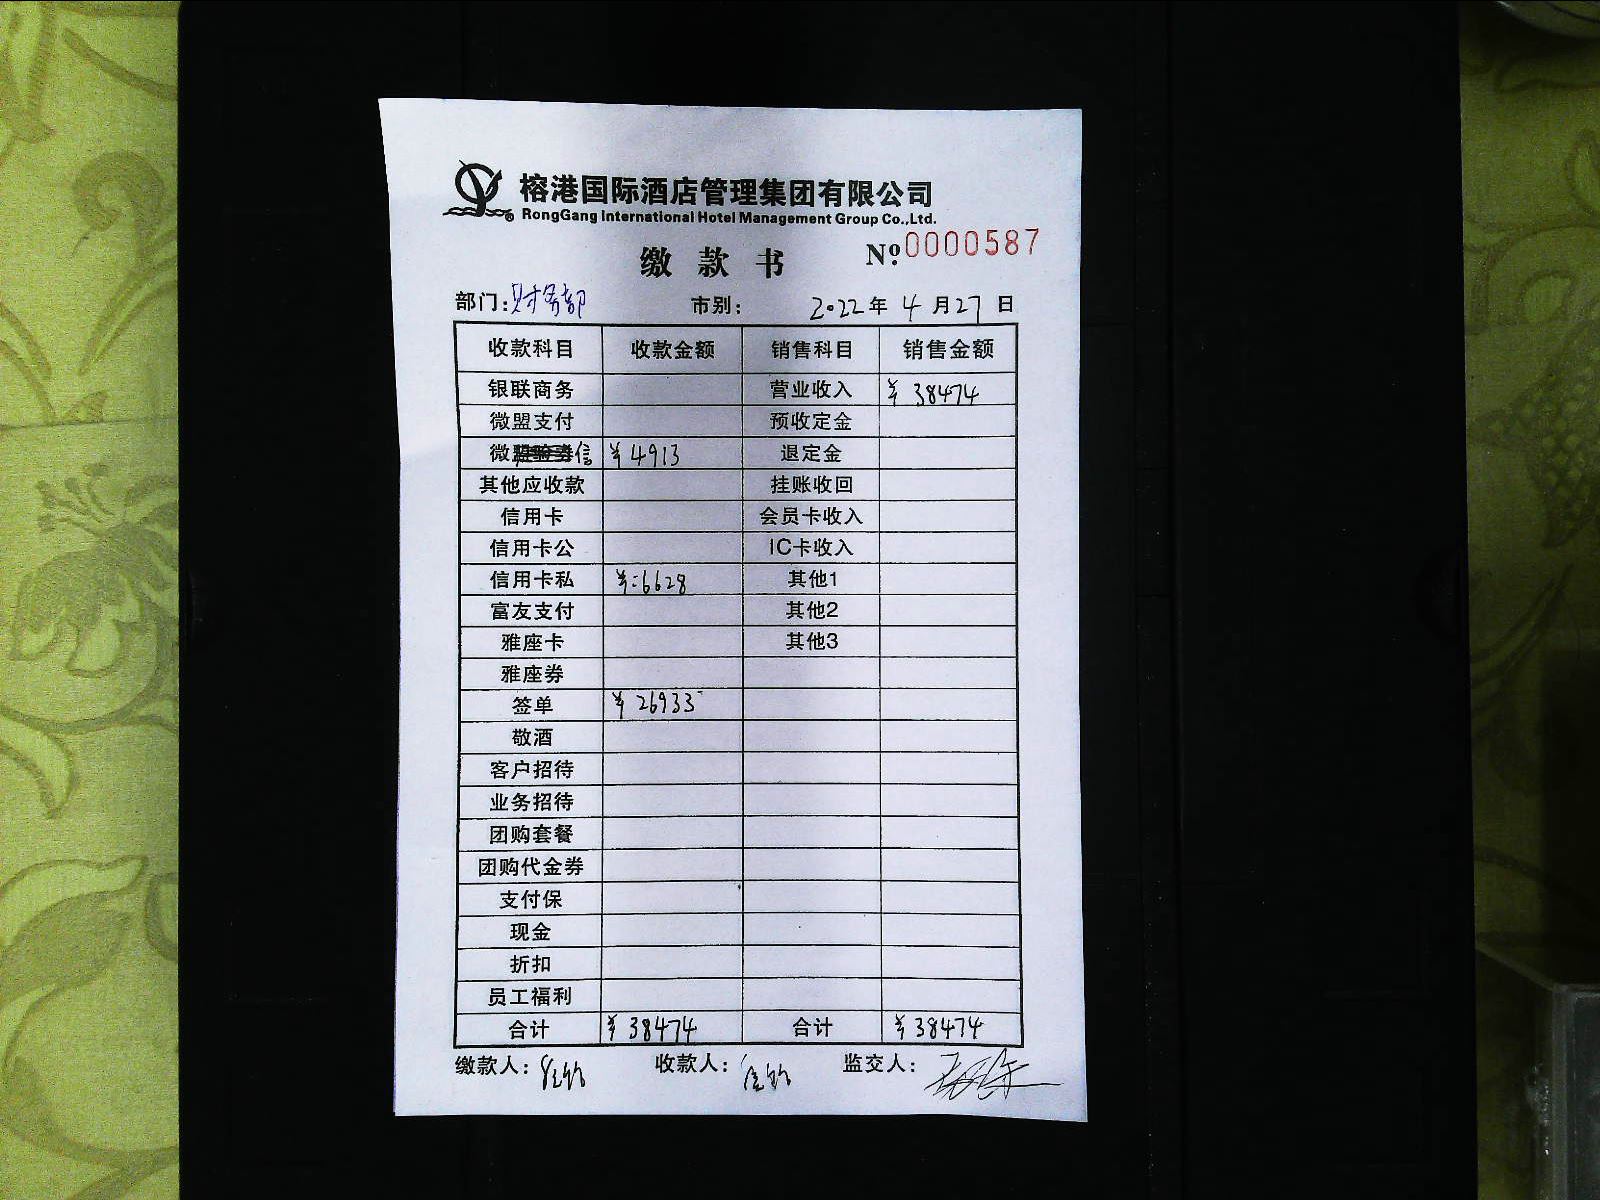 榕港国际酒店管理集团有限公司
RongGang International Hotel Management Group Co.,Ltd.
缴款书 No:0000587
部门:财务部 市别: 2022年4月27日
收款科目 收款金额 销售科目 销售金额
银联商务 营业收入 ¥ 38474
微盟支付 预收定金
微信 ¥ 4913 退定金
其他应收款 挂账收回
信用卡 会员卡收入
信用卡公 IC卡收入
信用卡私 ¥:6628 其他1
富友支付 其他2
雅座卡 其他3
雅座券
签单 ¥ 26933
敬酒
客户招待
业务招待
团购套餐
团购代金券
支付保
现金
折扣
员工福利
合计 ¥ 38474 合计 ¥ 38474
缴款人: 收款人: 监交人: